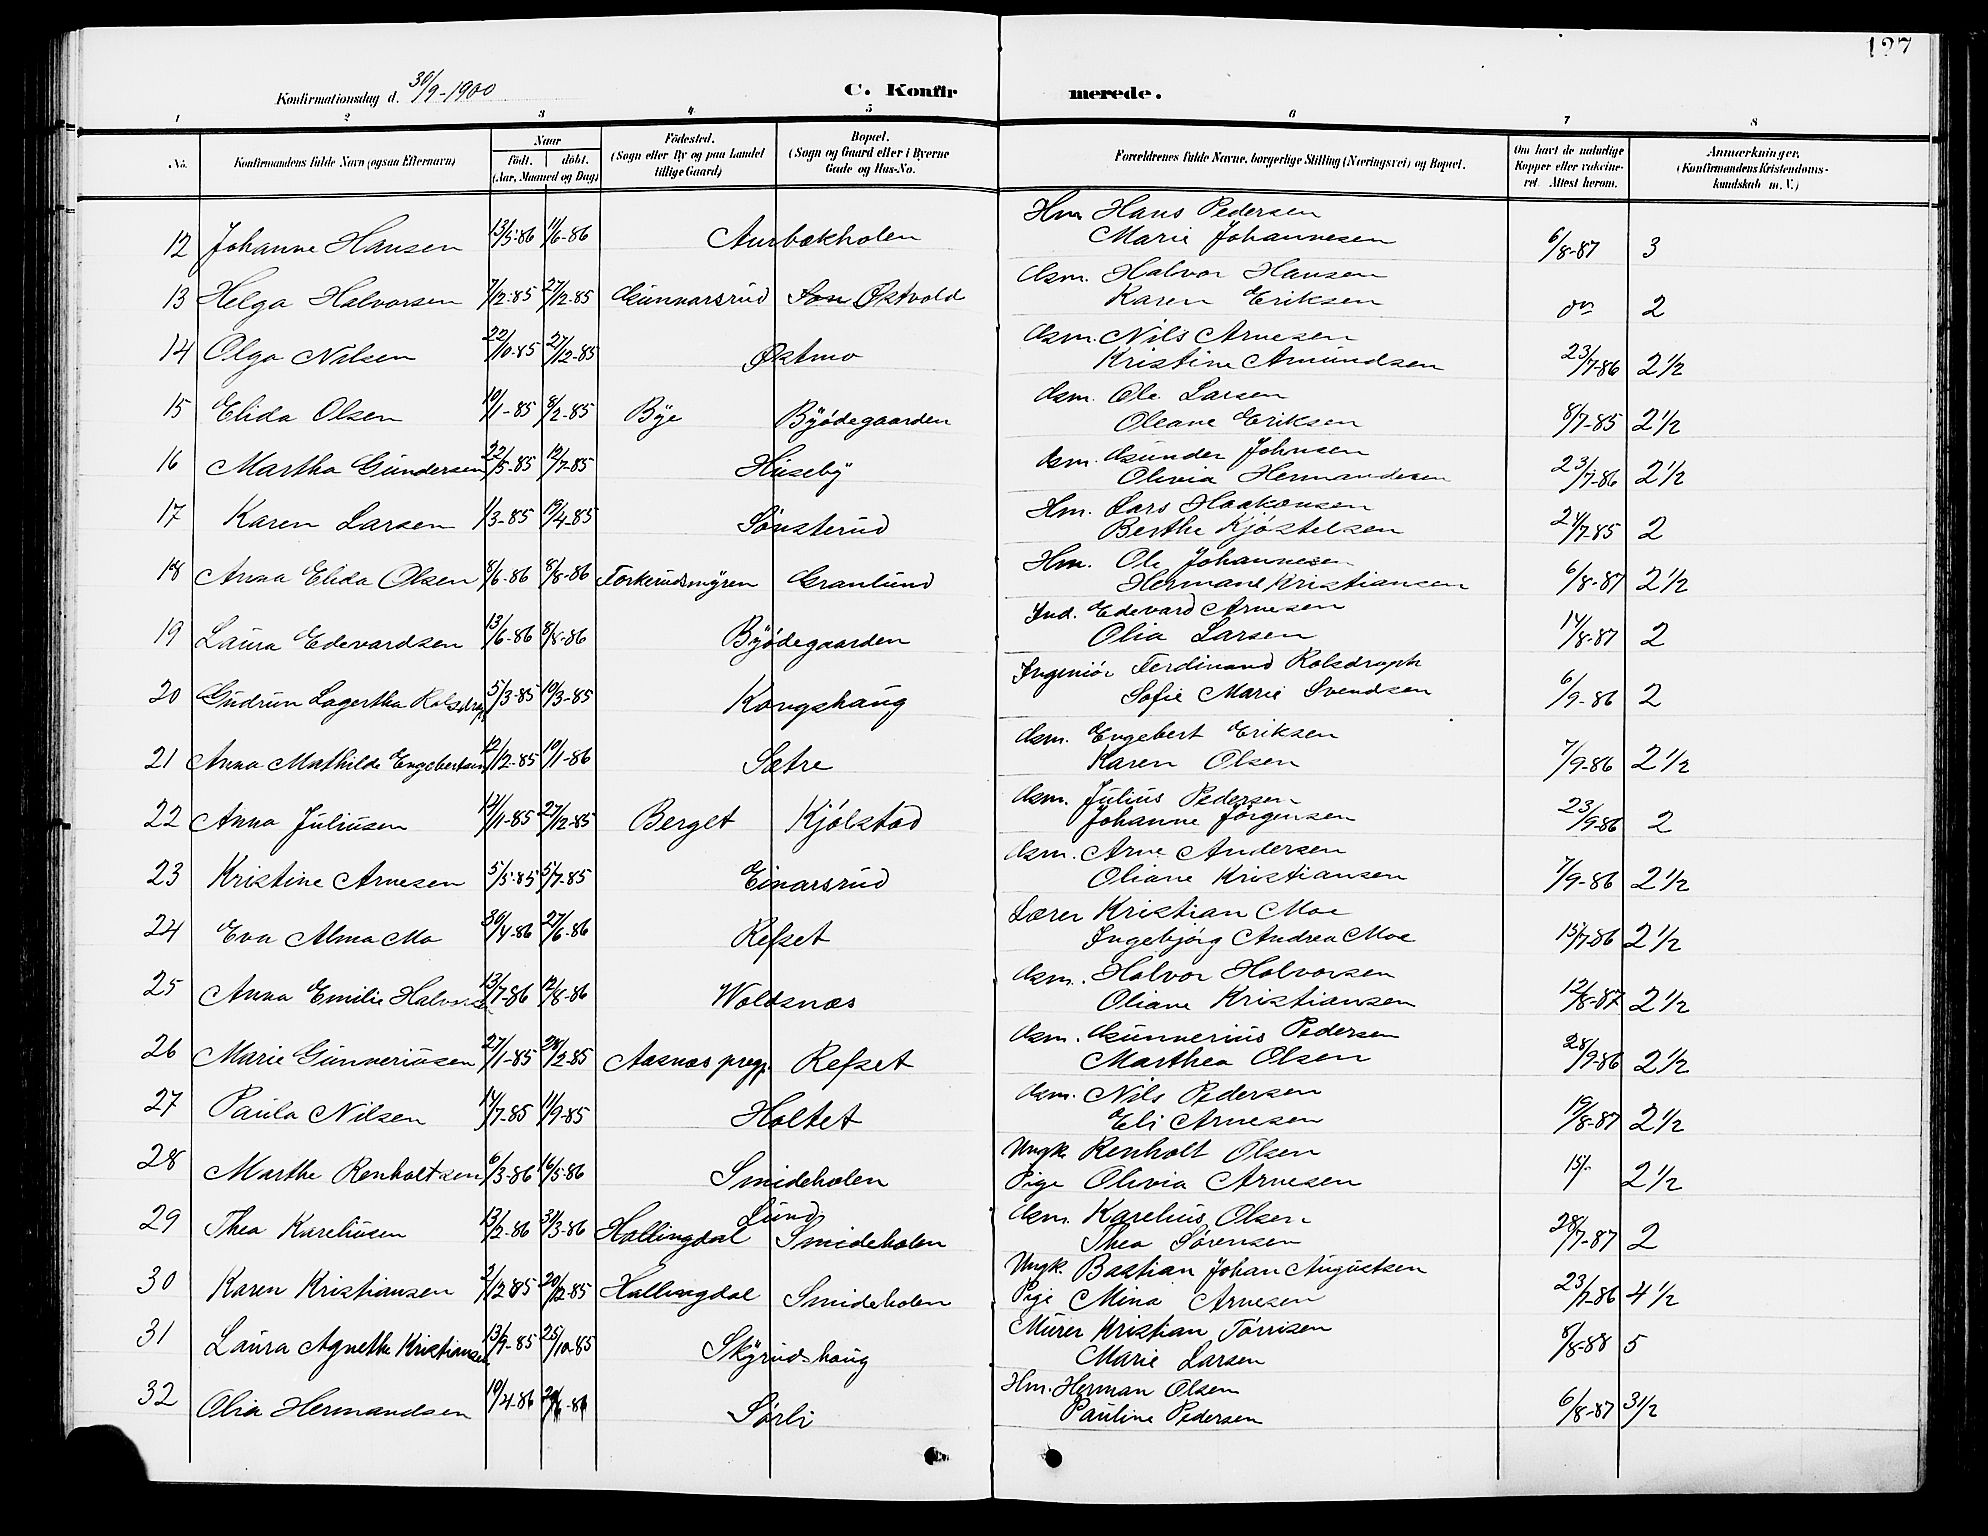 127
Konfirmationsdag d. 30/9-1900
C. Konfirmerede.
1 2 3 4 5 6 7 8
No. Konfirmandens fulde Navn (ogsaa Efternavn) Naar født. døbt. (Aar, Maaned og Dag) Fødested. (Sogn eller By og paa Landet tillige Gaard) Bopæl. (Sogn og Gaard eller i Byerne Gade og Hus-No. Forældrenes fulde Navne, borgerlige Stilling (Næringsvei) og Bopæl. Om havt de naturlige Kopper eller vakcineret. Attest herom. Anmærkninger, (Konfirmandens Kristendomskundskab m. V.)
12 Johanne Hansen 13/5-86 1/6-86 Aurbækholen Hm Hans Pedersen
Marie Johannesen 6/8-87 3
13 Helga Halvorsen 7/12-85 27/12-85 Gunnarsrud Østvold Gsm. Halvor Hansen
Karen Eriksen 2
14 Olga Nilsen 22/10-85 27/12-85 Østmo Gsm. Nils Arnesen
Kristine Amundsen 23/7-86 2 1/2
15 Elida Olsen 10/1-85 8/2-85 Bye Byødegaarden Gsm. Ole Larsen
Oleane Eriksen 8/7-85 2 1/2
16 Martha Gundersen 22/5-85 12/7-85 Huseby Gsm. Gunder Johnsen
Olivia Hermandsen 23/7-86 2 1/2
17 Karen Larsen 1/3-85 19/4-85 Sønsterud Hm. Lars Haakonsen
Berthe Kjøstelsen 24/7-85 2
18 Anna Elida Olsen 8/6-86 8/8-86 Torkerudsmyren Granlund Hm. Ole Johannesen
Hermane Kristiansen 6/8-87 2 1/2
19 Laura Edevardsen 13/6-86 8/8-86 Byødegaarden Ind. Edevard Arnesen
Olia Larsen 14/8-87 2
20 Gudrun Lagertha 5/3-85 19/3-85 Kongshaug Ingeniør Ferdinand Rolsdroph
Sofie Marie Svendsen 6/9-86 2
21 Anna Mathilde Engebertsen 12/12-85 10/1-86 Sætre Gsm. Engebert Eriksen
Karen Olsen 7/9-86 2 1/2
22 Anna Juliusen 12/11-85 27/12-85 Berget Kjølstad Gsm. Julius Pedersen
Johanne Jørgensen 23/9-86 2
23 Kristine Arnesen 5/5-85 5/7-85 Einarsrud Gsm. Arne Andersen
Oliane Kristiansen 7/9-86 2 1/2
24 Eva Alma Mo 30/4-86 27/6-86 Refset Lærer Kristian Moe
Ingebjørg Andrea Moe 15/7-86 2 1/2
25 Anna Emilie Halvorsen 13/7-86 12/8-86 Woldsnæs Gsm. Halvor Halvorsen
Oliane Kristiansen 12/8-87 2 1/2
26 Marie Gunneriusen 27/1-85 28/2-85 Aasnæs prgj. Refset Gsm. Gunnerius Pedersen
Marthea Olsen 28/9-86 2 1/2
27 Paula Nilsen 14/7-85 11/9-85 Holtet Gsm. Nils Pedersen
Eli Arnesen 19/8-87 2 1/2
28 Marthe Renholtsen 6/3-86 16/5-86 Smideholen Ungk. Renholt Olsen
Pige Olivia Arnesen 2 1/2
29 Thea Kareliusen 13/2-86 31/3-86 Lund Gsm. Karelius Olsen
Hallingdal Smideholen Thea Sørensen 28/7-87 2
30 Karen Kristiansen 2/12 85 20/12-85 Hallingdal Smideholen Ungk. Bastian Johan Augustsen
Pige Mina Arnesen 23/7-86 4 1/2
31 Laura Agnethe Kristiansen 13/9-85 25/10-85 Skyrudshaug Murer Kristian Tørrisen
Marie Larsen 8/8-88 5
32 Olia Hermandsen 19/4-86 Sørli Hm. Herman Olsen
Pauline Pedersen 6/8-87 3 1/2